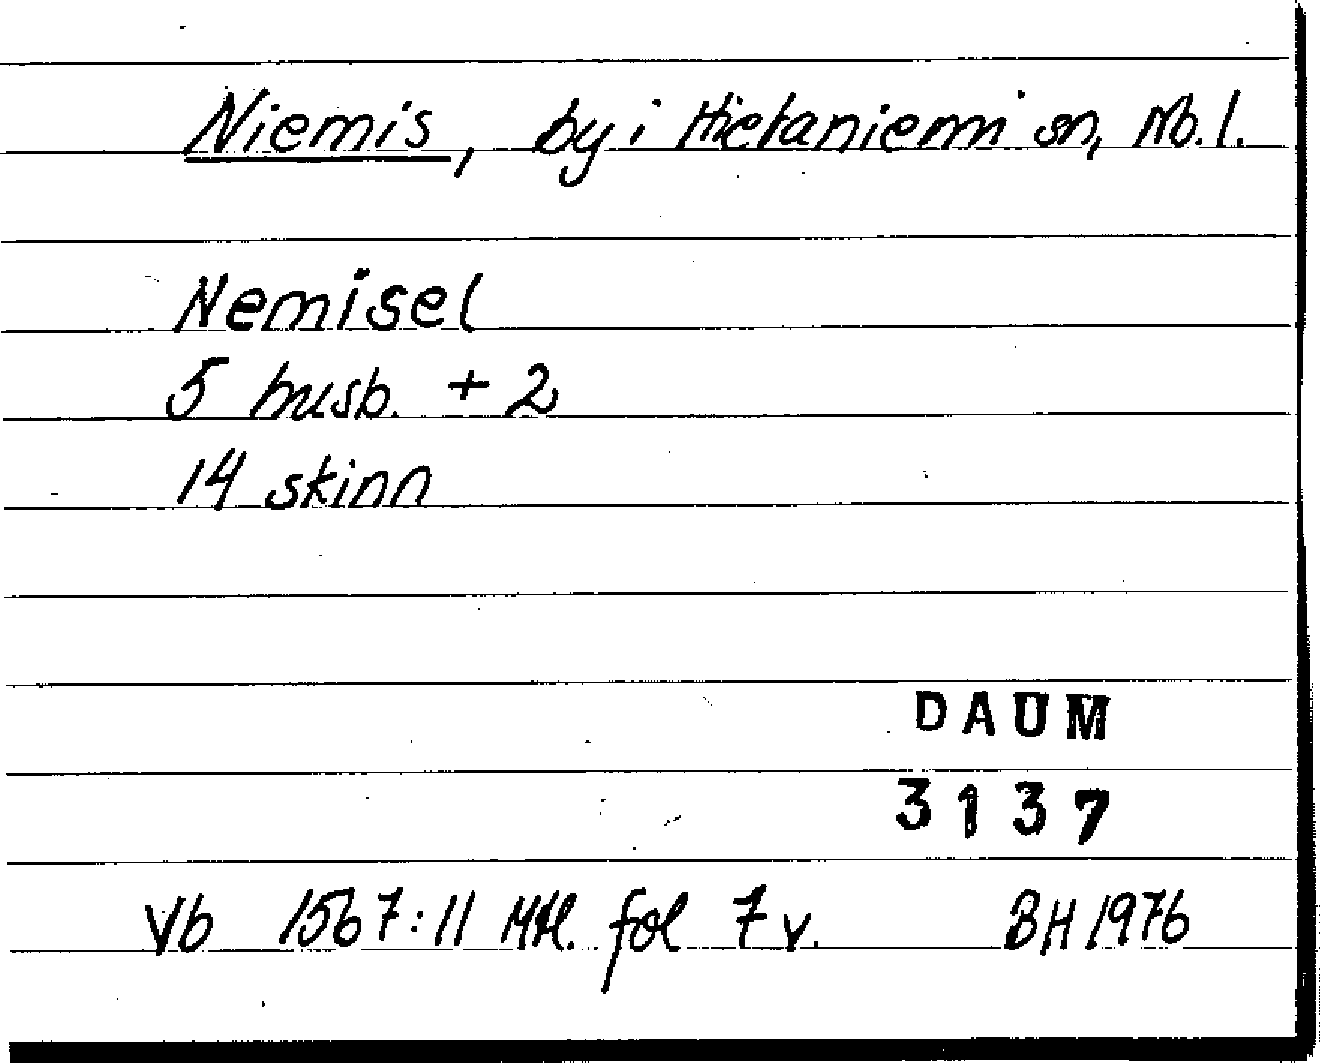 Niemis, by i Hietaniemi sn, Nb. l.
Nemisel
5 husb. + 2
14 skinn
DAUM
3137
Vb 1567:11 Mtl. fol 7 v. BH 1976